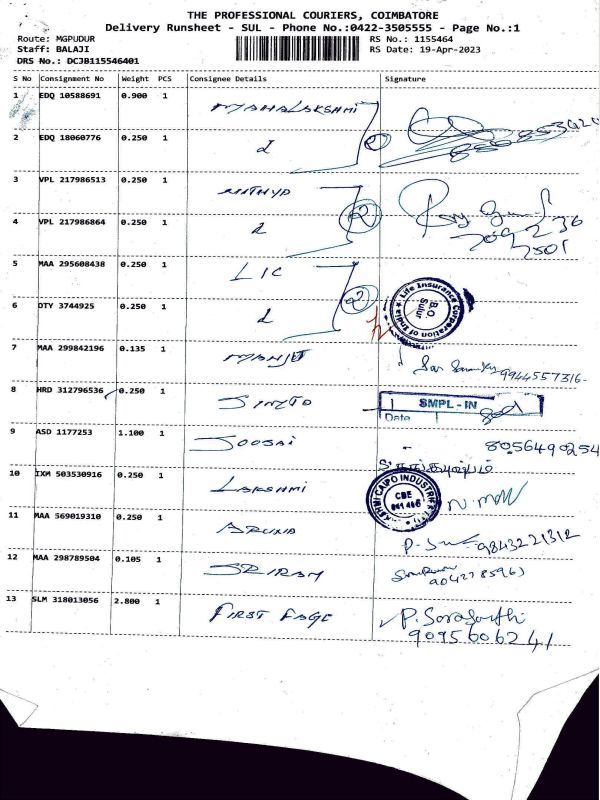 THE PROFESSIONAL COURIERS, COIMBATORE
Delivery Runsheet - SUL - Phone No.:0422-3505555 - Page No.:1
Route: MGPUDUR RS No.: 1155464
Staff: BALAJI RS Date: 19-Apr-2023
DRS No.: DCJB115546401
S No Consignment No Weight PCS Consignee Details Signature
1 EDQ 10588691 0.900 1 MAHALAKSHMI
2 EDQ 18060776 0.250 1 2
3 VPL 217986513 0.250 1 NITHYA
4 VPL 217986864 0.250 1 2
5 MAA 295608438 0.250 1 LIC
Life Insurance Corporation of India
B.O
Sulur
6 DTY 3744925 0.250 1 2
7 MAA 299842196 0.135 1 MANJU 9944557316
8 HRD 312796536 0.250 1
SMPL - IN
Date
9 ASD 1177253 1.100 1 JOOSAI 8056490254
10 IXM 503530916 0.250 1 LAKSHMI
CBE
641 406
11 MAA 569019310 0.250 1 ARUNA 9843221312
12 MAA 298789504 0.105 1 SRIRAM
13 SLM 318013056 2.800 1 FIRST EAGE P. Sarasathi
9095606241